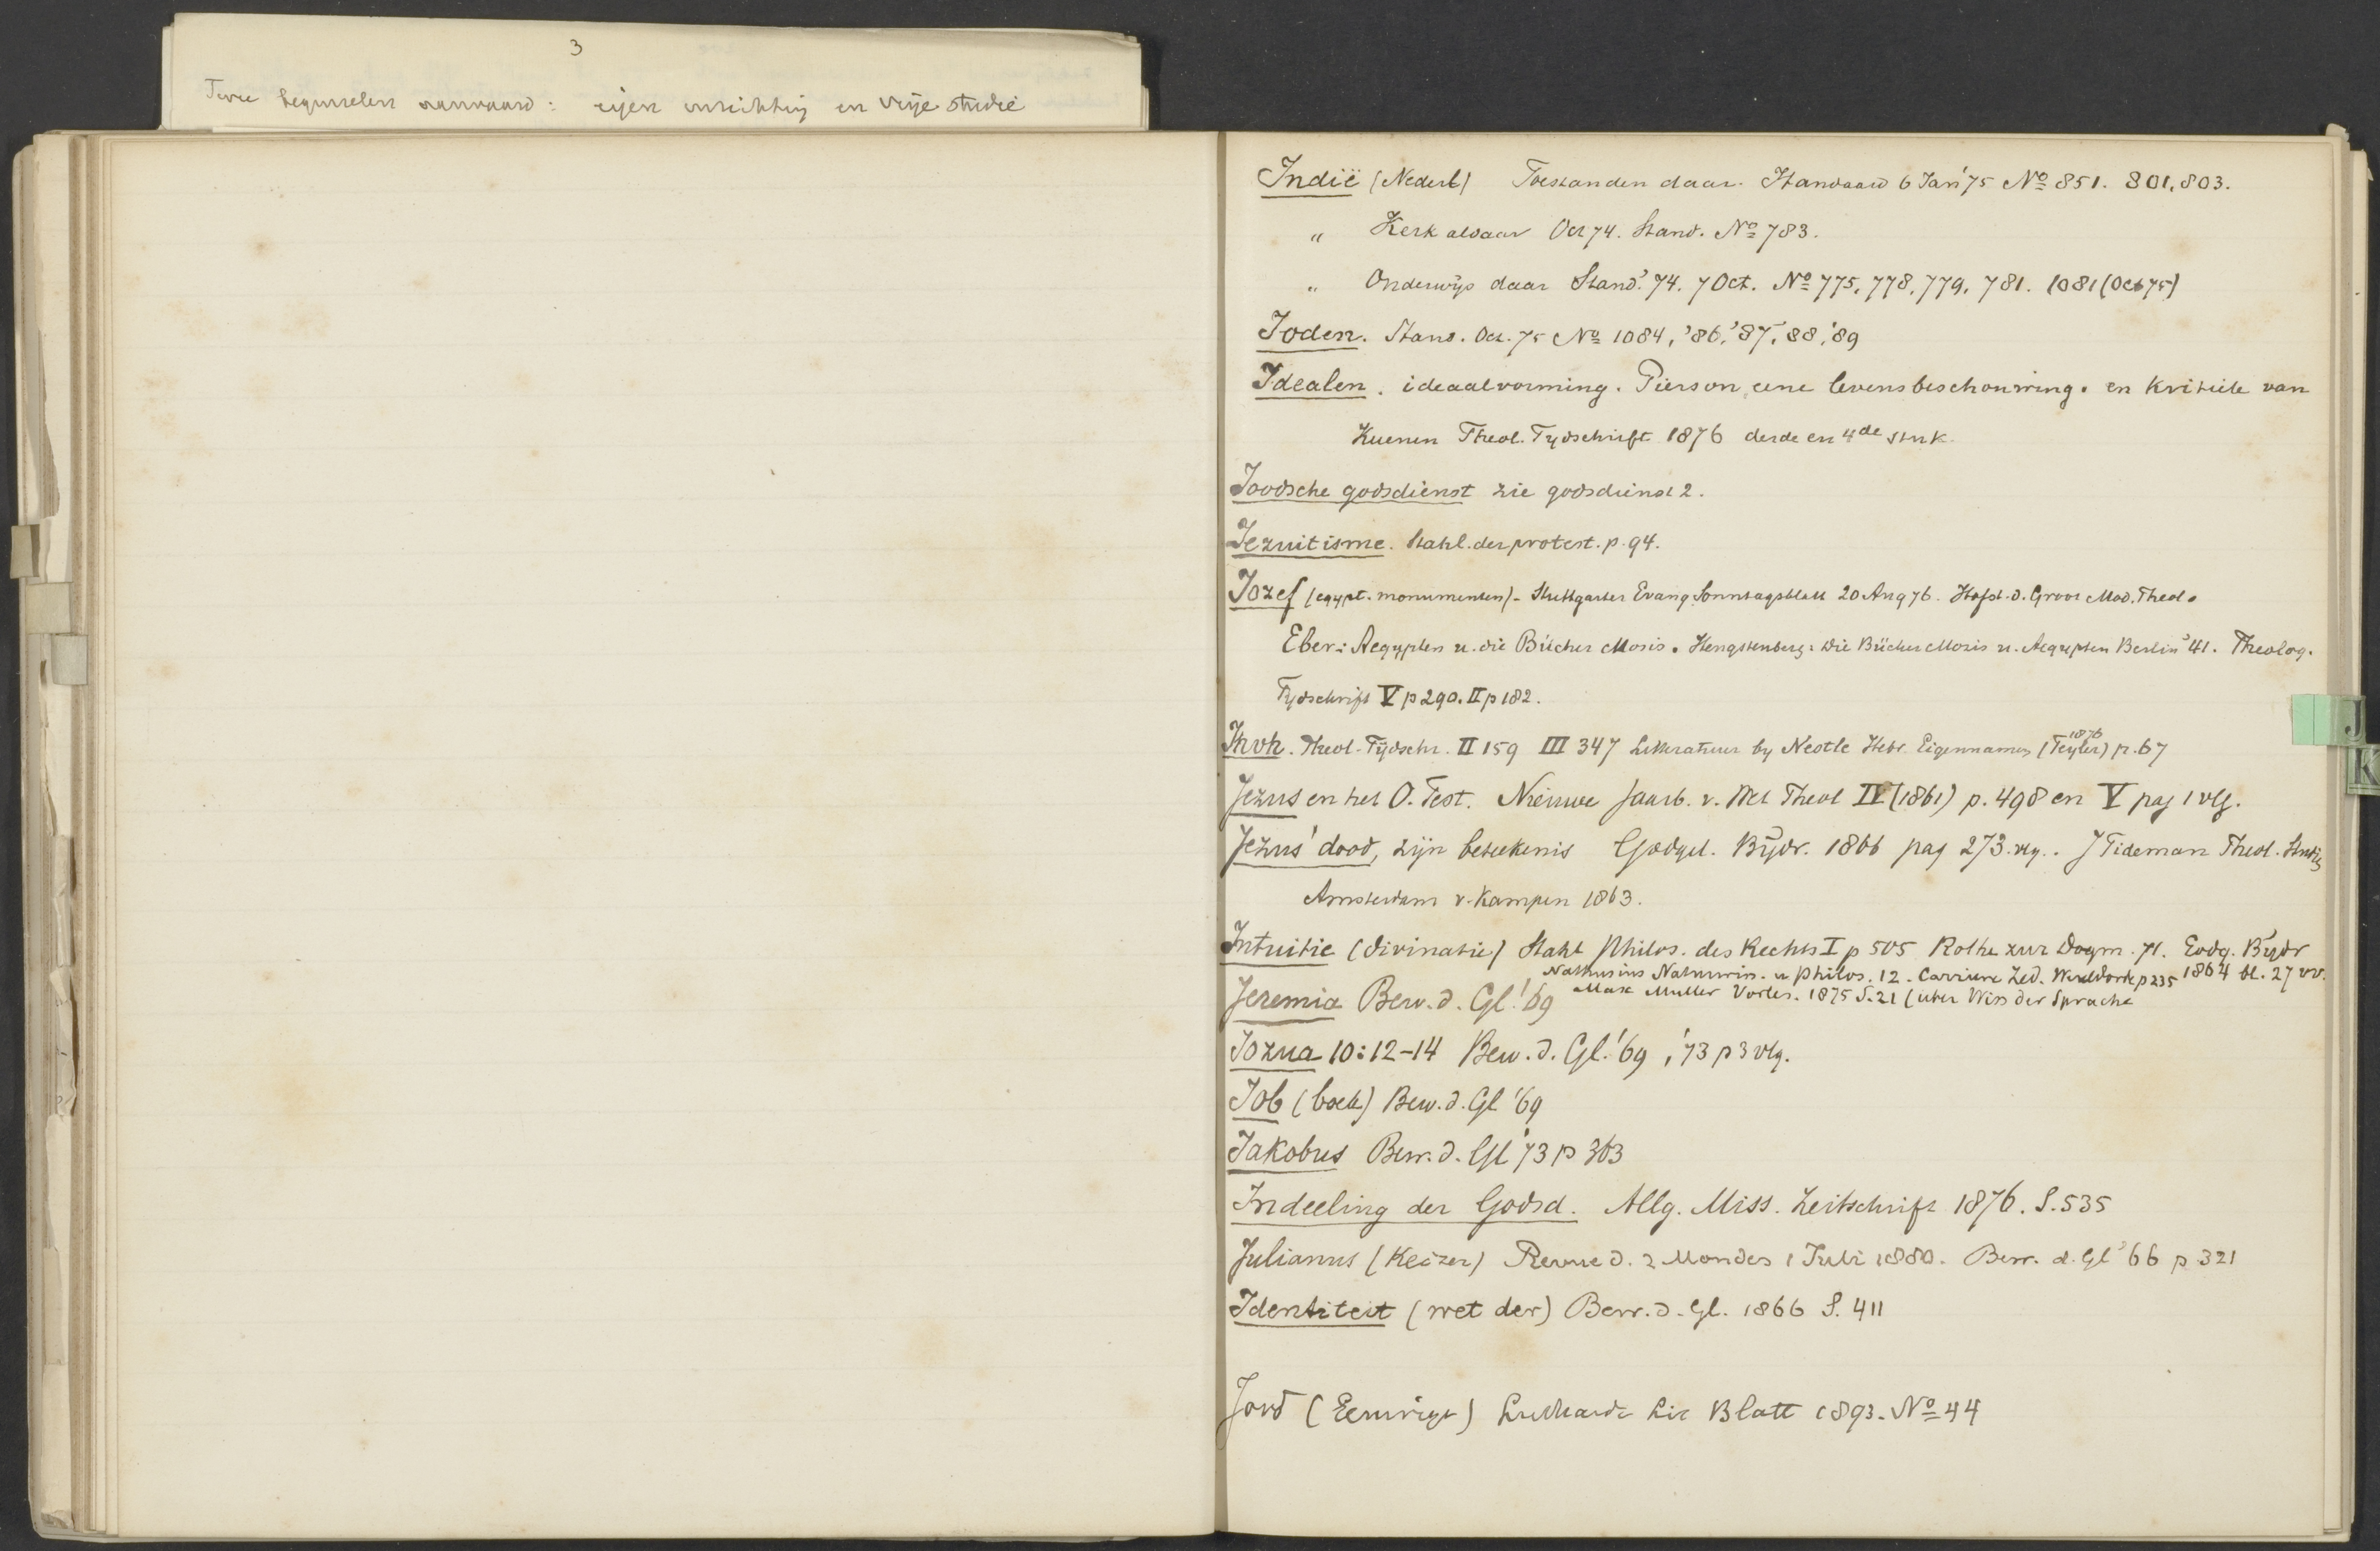 3
Twee beginselen aanvaard: eigen inrichting en vrije studie
Indië (Nederl) Toestanden daar. Standaard 6 Jan '75 No 851. 801, 803.
" Kerk aldaar Oct 74. Stand. No 783.
" Onderwijs daar Stand. '74. 7 Oct. No 775, 778, 779, 781. 1081 (Oct 75)
Joden. Stand. Oct. 75 No 1084, '86, '87, '88, '89
Idealen. ideaalvorming. Pierson, eene levensbeschouwing. en kritiek van
Kuenen Theol. Tydschrift 1876 derde en 4de stuk.
Joodsche godsdienst zie godsdienst 2.
Jezuitisme. Stahl. der protest. p. 94.
Jozef (egypt. monumenten) - Stuttgarter Evang. Sonntagsblatt 20 Aug 76. Hofst. d. Groot Mod. Theol.
Eber: Aegypten u. die Bücher Mosis. Hengstenberg: Die Bücher Mosis u. Aegypten Berlin '41. Theolog.
Tydschrift V p 290. II p 182.
Jhvh. Theol. Tijdschr. II 159 III 347 Litteratuur by Nestle Hebr. Eigennamen (Teyler) 1876 p. 67
Jezus en het O. Test. Nieuwe Jaarb. v. Wet Theol IV (1861) p. 498 en V pag 1 vlg.
Jezus' dood, zijn beteekenis Godgel. Bijdr. 1866 pag 273. vlg. . J Tideman Theol. Studiën
Amsterdam v. Kampen 1863.
Intuitie (divinatie) Stahl Philos. des Rechts I p 505 Rothe zur Dogm. 71. Godg. Bijdr
1864 bl. 27 vv.
Nathusius Naturwis. u Philos. 12. Carriere Zed. Wereldorde p 235
Jeremia Bew. d. Gl. '69 Max Muller Vorles. 1875 S. 21 (über Wiss der Sprache
Jozua 10:12-14 Bew. d. Gl. '69, '73 p 3 vlg.
Job (boek) Bew. d. Gl '69
Jakobus Bew. d. Gl '73 p 363
Indeeling der Godsd. Allg. Miss. Zeitschrift 1876. S. 535
Julianus (Keizer) Revue d. 2 Mondes 1 Juli 1880. Bew. d. Gl '66 p 321
Identiteit (wet der) Bew. d. Gl. 1866 S. 411
Jord (Eeuwige) Luthardt Lit Blatt 1893. No 44
J
K